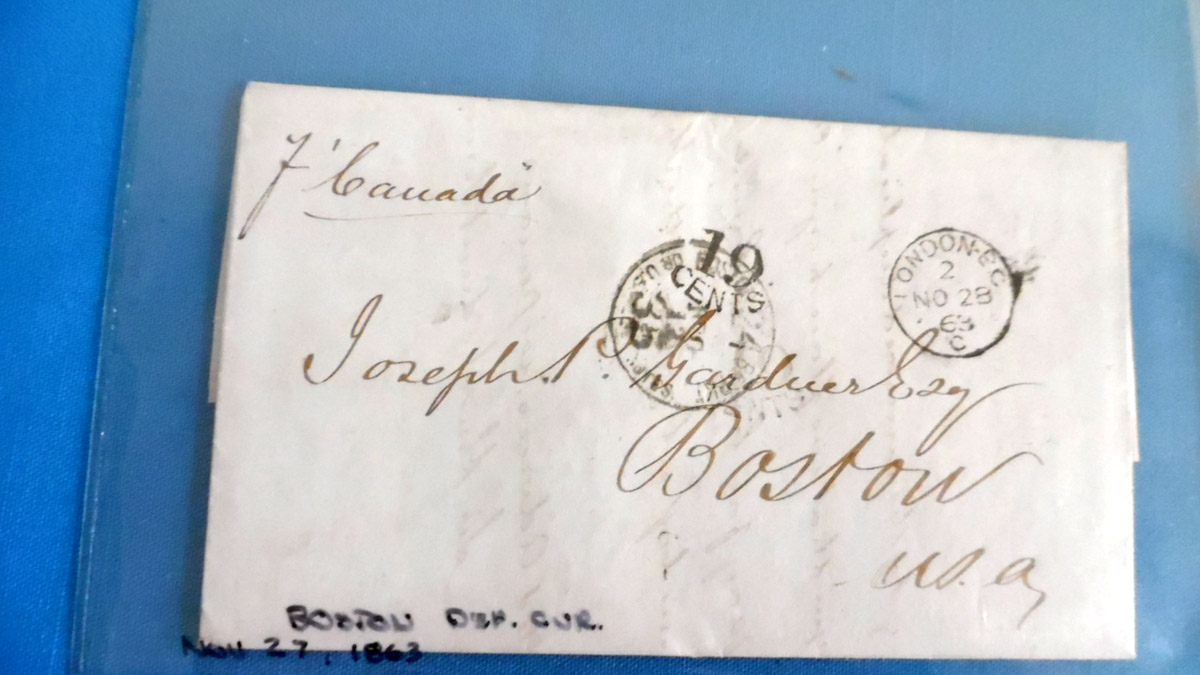 ⅌ "Canada"
19
CENTS
LONDON-E.C
2
NO 28
63
C
Joseph P. Gardner Esq
Boston
U.S.a
BOSTON DEP. CUR.
NOV 27, 1863